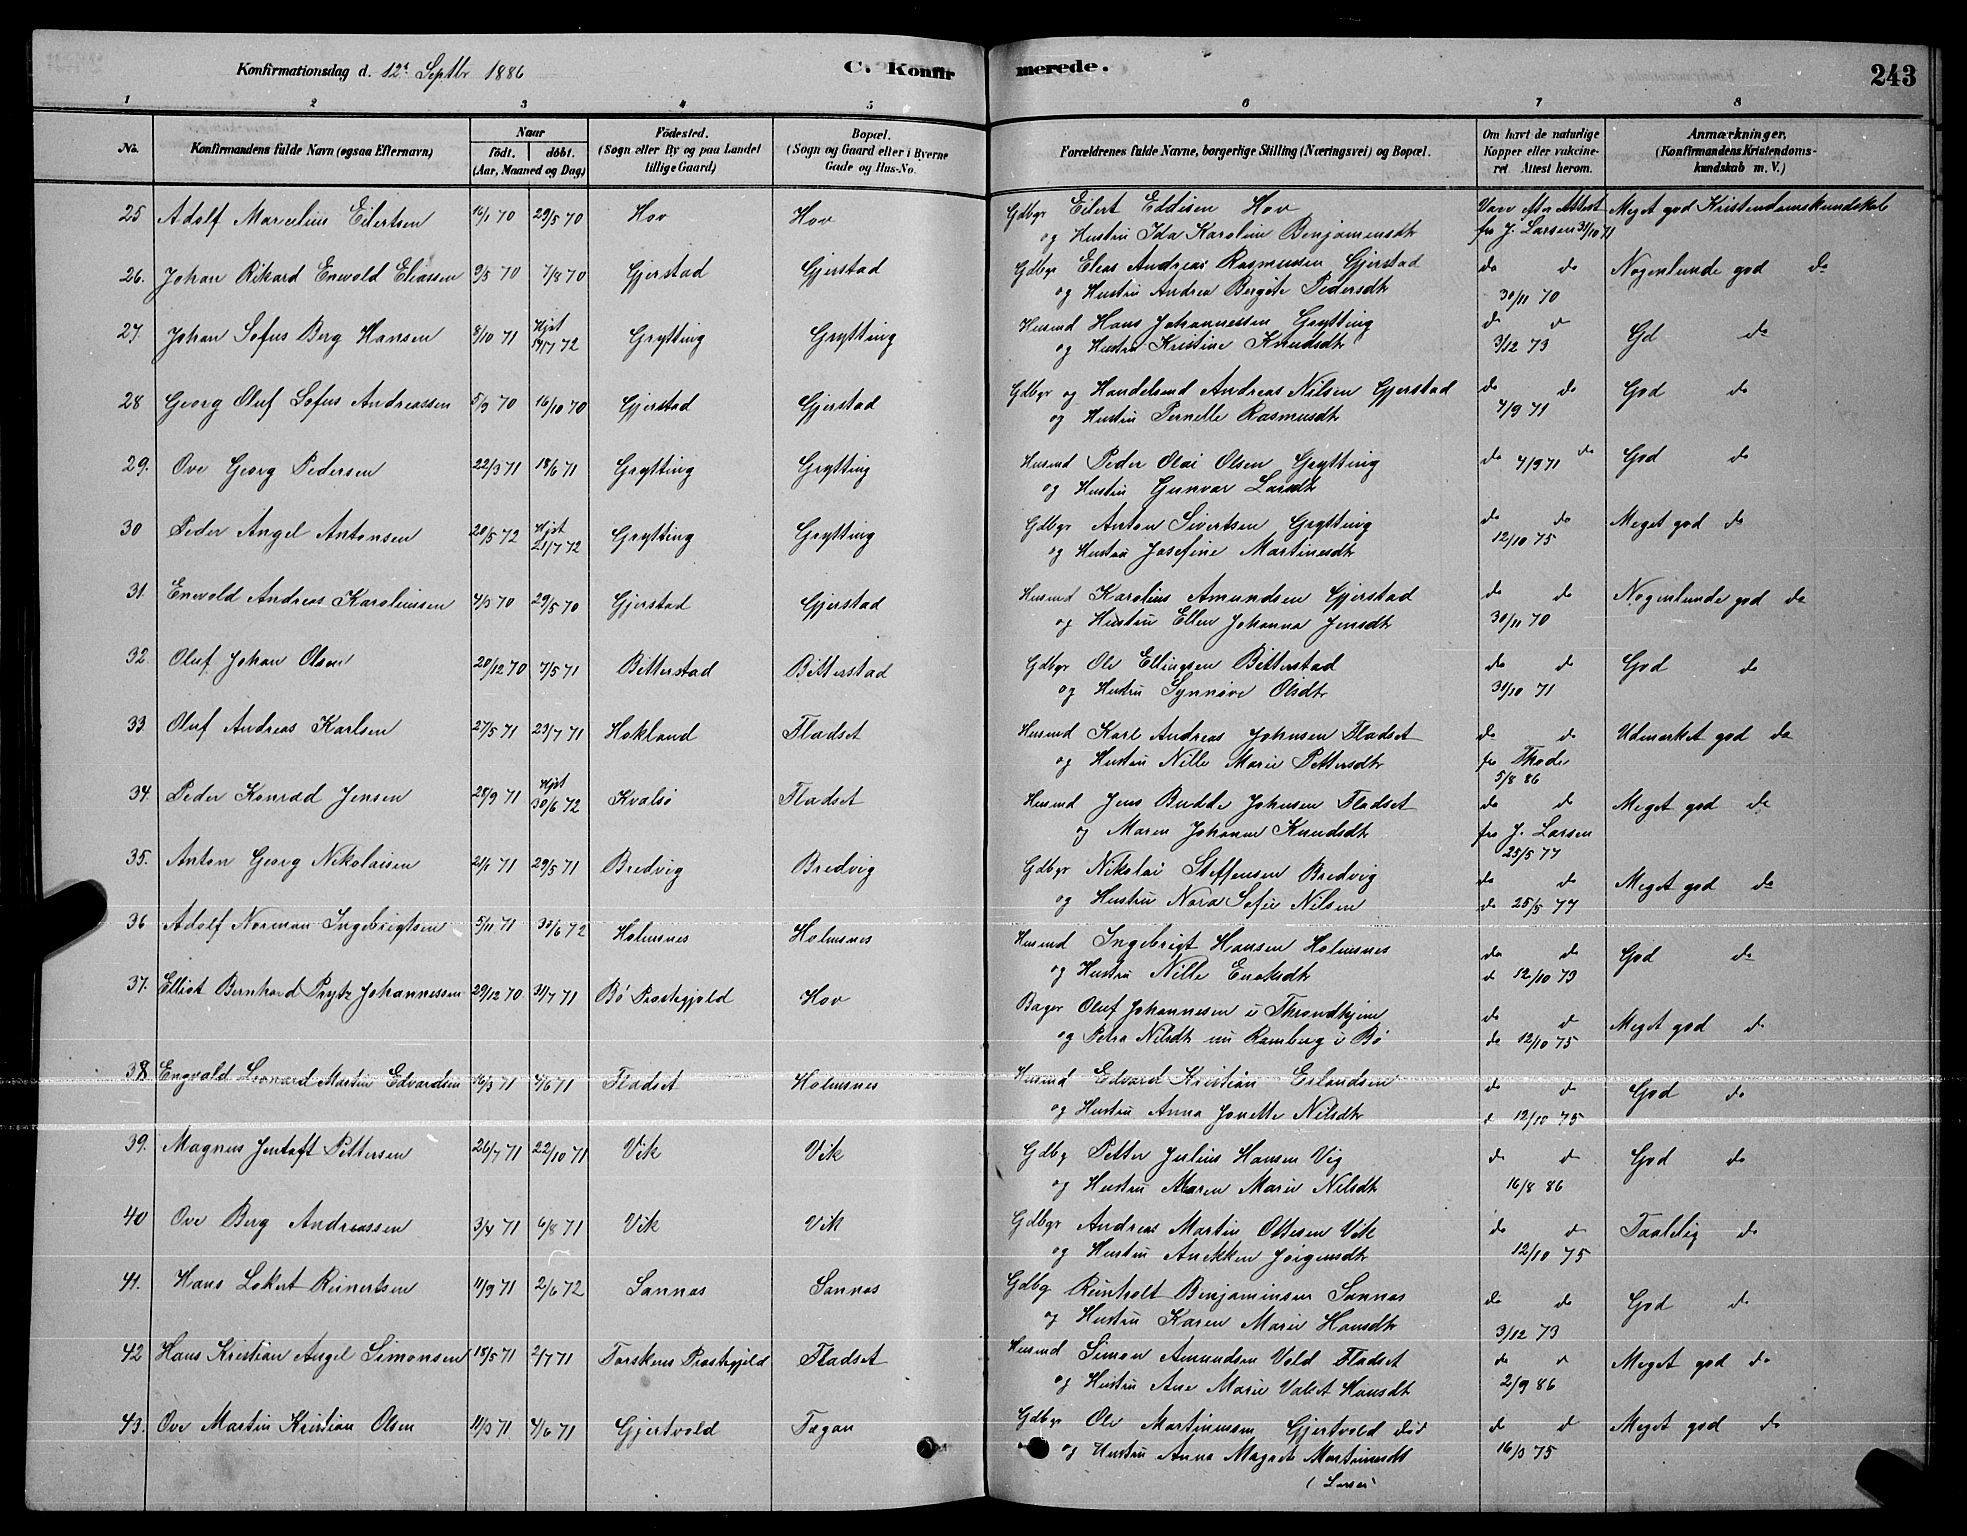 Konfirmationsdag d. 12te Septbr 1886
C. Konfirmerede.
243
1 2 3 4 5 6 7 8
No.
Konfirmandens fulde Navn (ogsaa Efternavn)
Naar
födt. döbt.
(Aar, Maaned og Dag)
Födested.
(Sogn eller By og paa Landet
tillige Gaard)
Bopæl.
(Sogn og Gaard eller i Byerne
Gade og Hus-No.
Forældrenes fulde Navne, borgerlige Stilling (Næringsvei) og Bopæl.
Om havt de naturlige
Kopper eller vakcine-
ret Attest herom.
Anmærkninger.
(Konfirmandens Kristendoms-
kundskab m. V.)
25 Adolf Marcelius Eilertsen 16/1 70 29/5 70 Hov Hov Gdbgr Eilert Eddisen Hov Vacc Att Meget god Kristendomskundskab
og Hustru Ida Karoline Benjaminsdtr fra J. Larsen 31/10 71
26. Johan Rikard Enevold Eliassen 9/5 70 7/8 70 Gjerstad Gjerstad Gdbgr Elias Andreas Rasmussen Gjerstad do do Nogenlunde god do
og Hustru Andrea Bergete Pedersdtr 30/11 70
27. Johan Sofus Berg Hansen 8/10 71 Hjdt 14/7 72 Grytting Grytting Husmd Hans Johannessen Grytting do d Gd do
og Hustru Kristine Knudsdtr 3/12 73
28 Georg Oluf Sofus Andreassen 5/9 70 16/10 70 Gjerstad Gjerstad Gdbgr og Handelsmd Andreas Nilsen Gjerstad do do God do
og Hustru Pernelle Rasmusdtr 4/9 71
29. Ove Georg Pedersen 22/3 71 18/6 71 Grytting Grytting Husmd Peder Olai Olsen Grytting do 4/9 71 do God do
og Hustru Gunvor Larsdtr
30 Peder Angel Antonsen 20/5 72 Hjdt 21/7 72 Grytting Grytting Gdbgr Anton Sivertsen Grytting do do Meget god do
og Hustru Josefine Martinusdtr 12/10 75
31. Enevold Andreas Karoliussen 4/3 70 29/5 70 Gjerstad Gjerstad Husmd Karolius Amundsen Gjerstad do do Nogenlunde god do
og Hustru Ellen Johanna Jensdtr 30/11 70
32 Oluf Johan Olsen 20/12 70 7/5 71 Bitterstad Bitterstad Gdbgr Ole Ellingsen Bitterstad do do God do
og Hustru Synnöve Olsdtr 31/10 71
33. Oluf Andreas Karlsen 27/5 71 23/7 71 Hokland Fladset Husmd Karl Andreas Johnsen Fladset do do Udmerket god do
og Hustru Nille Marie Pettersdtr fra Thode
5/8 86
34. Peder Konrad Jensen 28/9 71 Hjdt 30/6 72 Kvalsö Fladset Husmd Jens Budde Johnsen Fladset do do Meget god do
og Maren Johanne Knudsdtr fra J. Larsen
25/5 77
35. Anton Georg Nikolaisen 21/1 71 29/5 71 Bredvig Bredvig Gdbgr Nikolai Steffensen Bredvig do do Meget god do
og Hustru Nora Sofie Nilsen do 25/5 77
36 Adolf Norman Ingebrigtsen 5/11 71 30/6 72 Holmsnes Holmsnes Husmd Ingebrigt Hansen Holmsnes do do God do
og Hustru Nille Enoksdtr d 12/10 73
37. Elliot Bernhard Prytz Johannessen 29/12 70 31/7 71 Bö Prestegjeld Hov Bager Oluf Johannesen i Throndhjem do d Meget god do
og Petra Nilsdtr nu Ramberg i Bö do 12/10 75
38 Engvald Leonard Martin Edvardsen 16/3 71 4/6 71 Fladset Holmsnes Husmd Edvard Kristian Erlandsen do do God do
og Hustru Anna Jonette Nilsdtr d 12/10 75
39. Magnus Jentoft Pettersen 26/7 71 22/10 71 Vik Vik Gdbg Petter Julius Hansen Vig d d God do
og Hustru Maren Marie Nilsdtr 16/8 86
40 Ove Berg Andreassen 3/4 71 6/8 71 Vik Vik Gdbgr Andreas Martin Ottesen Vik do d Taalelig do
og Hustru Anekken Jörgensdtr 12/10 75
41. Hans Lokert Reinertsen 11/9 71 2/6 72 Sannes Sannes Gdbg Reinholt Benjaminsen Sannes do do God do
og Hustru Karen Marie Hansdtr 3/12 73
42 Hans Kristian Angel Simonsen 18/5 71 2/7 71 Torskens Prestegjeld Fladset Husmd Simon Amundsen Vold Fladset do d Meget god do
og Hustru Ane Marie Hansdtr 2/9 86
43. Ove Martin Kristian Olsen 11/3 71 4/6 71 Gjertvold Tøgan Gdbgr Ole Martinussen Gjertvold död d d Meget god d
og Hustru Anna Magrete Martinusdtr 16/3 75